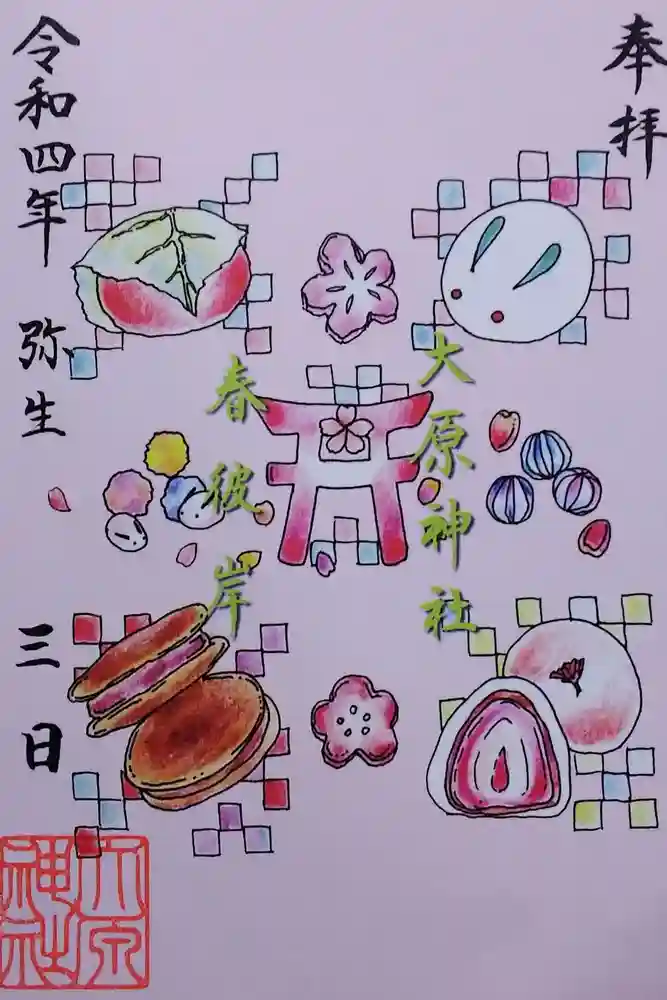 奉拝
大原神社
春彼岸
令和四年 弥生 三日
大原神社